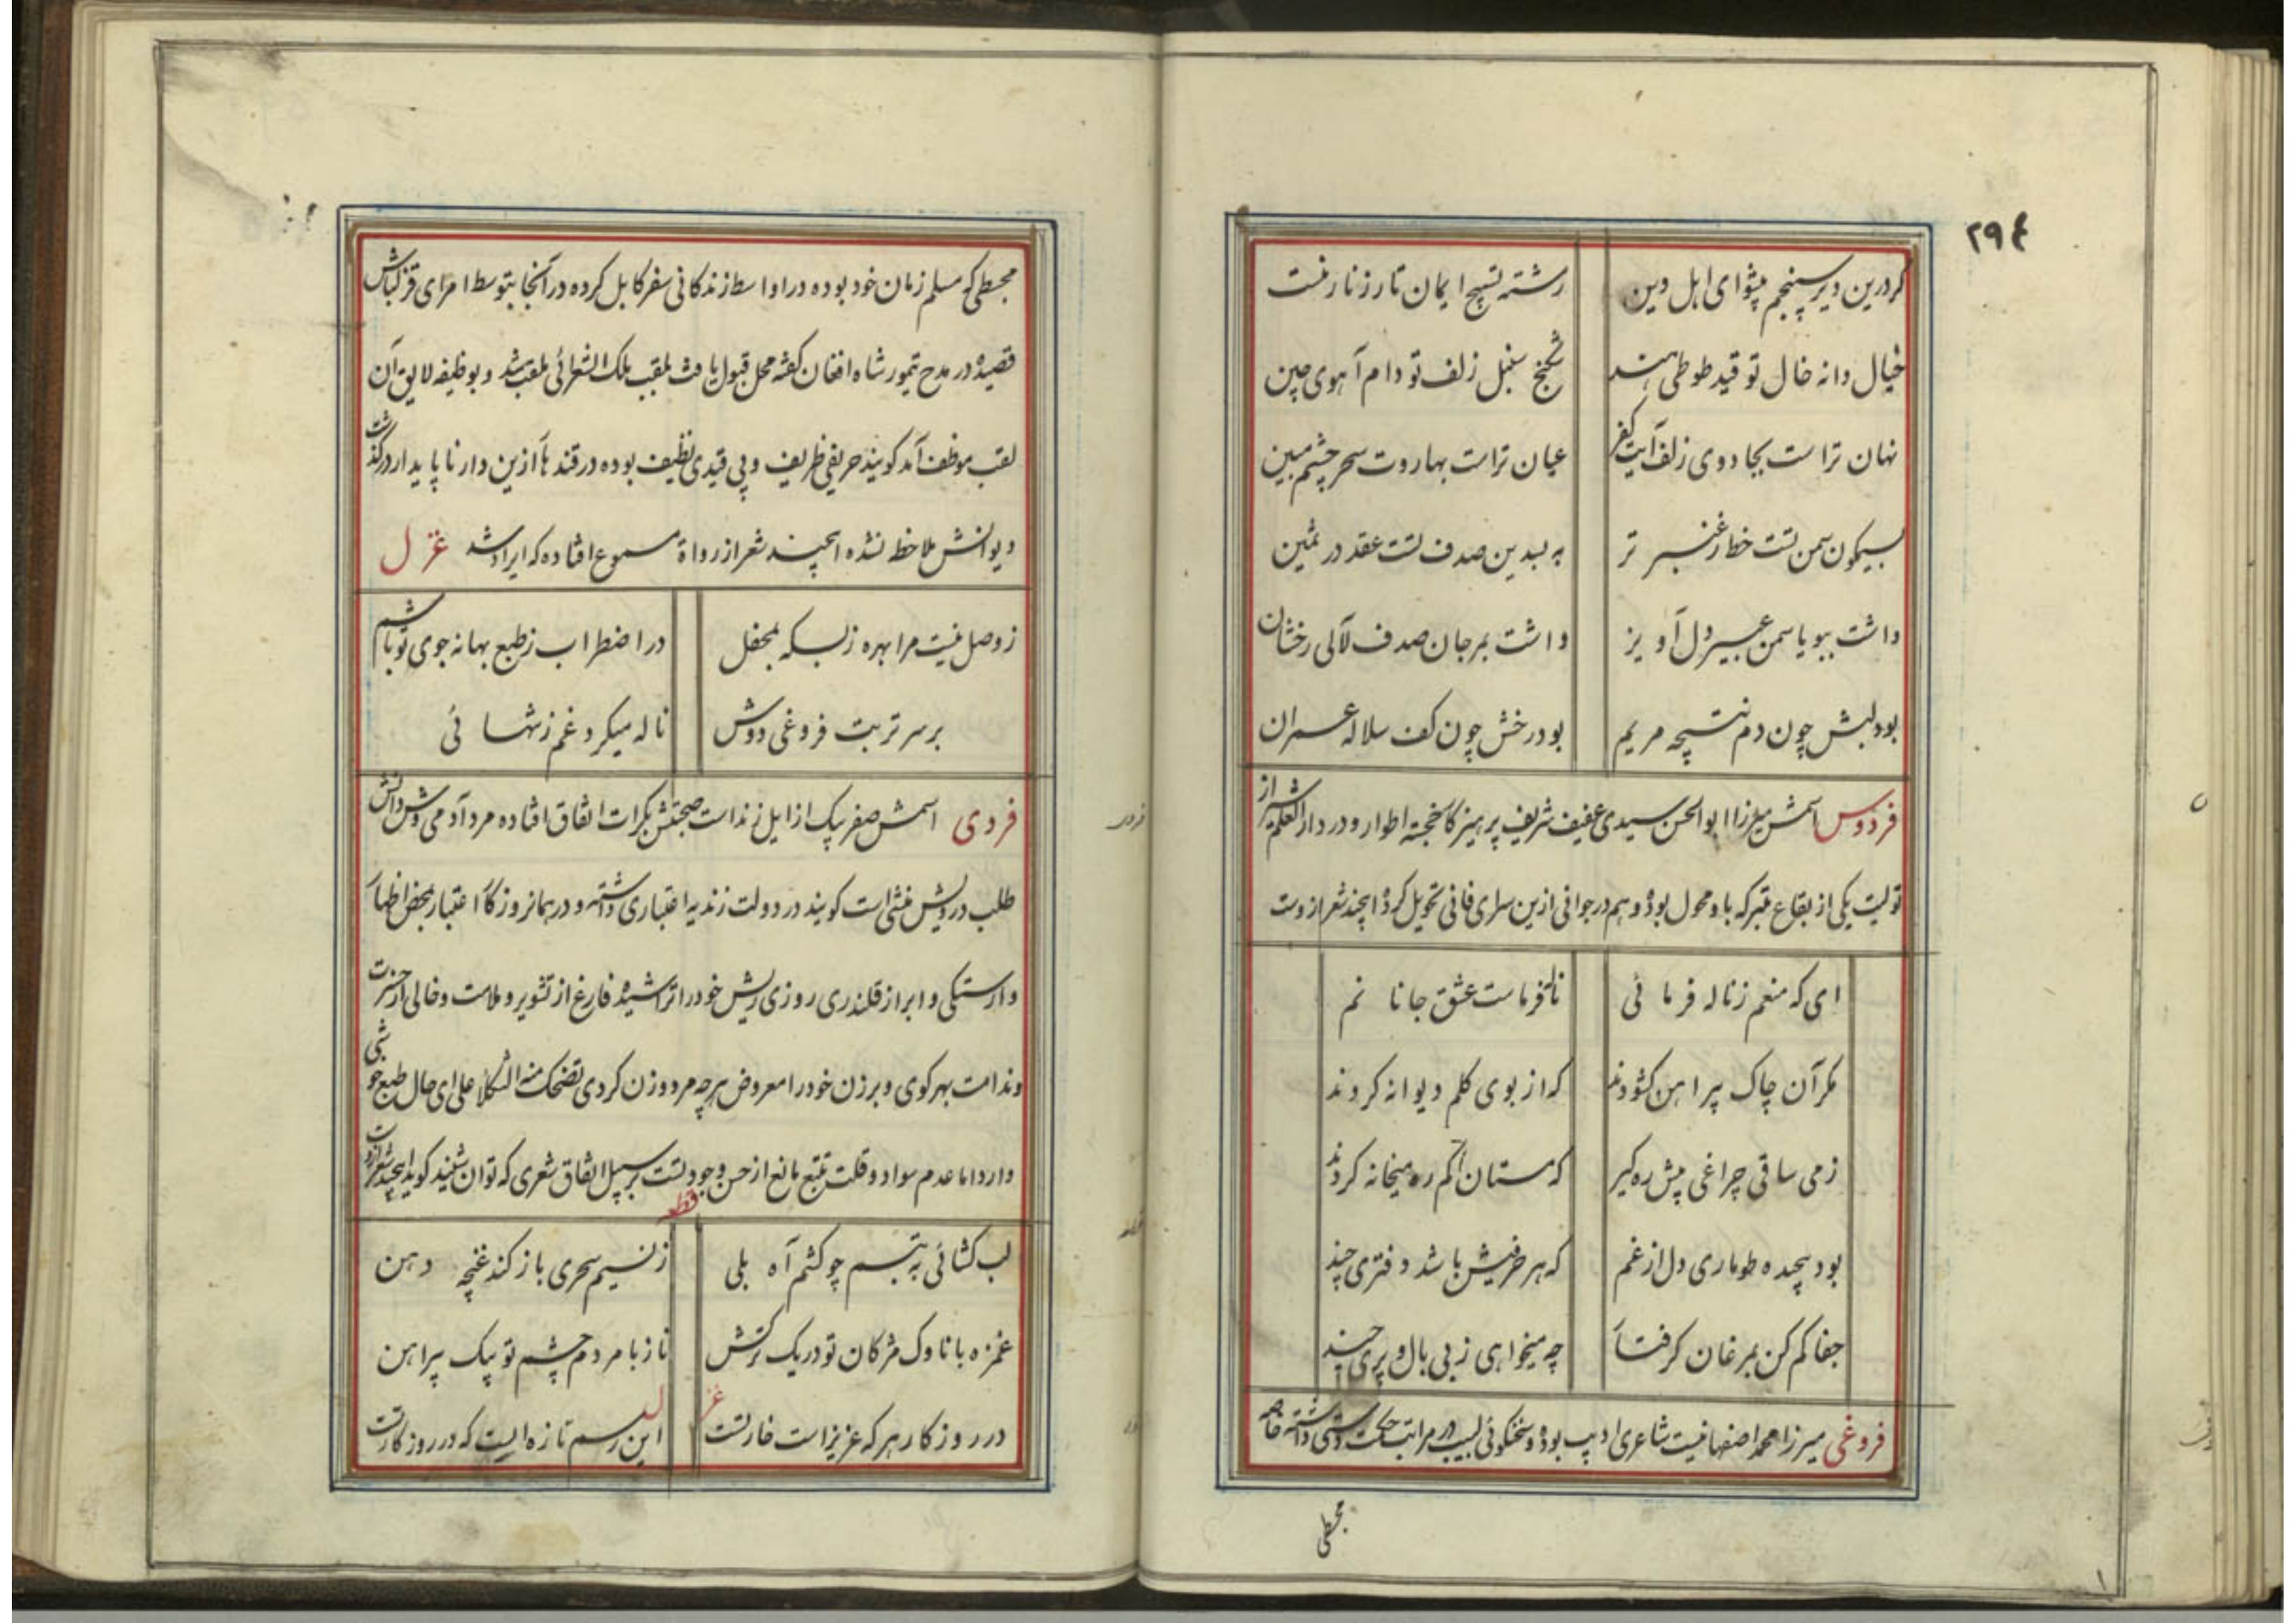 ۲۹۴
کردرین دیر سپنجم پیشوای اهل دین رشته تسبیح ایمان تار زنار منست
خیال دانه خال تو قید طوطی هند شکنج سنبل زلف تو دام آهوی چین
نهان تراست بجادوی زلف آیت کفر عیان تراست بهاروت سحر چشم مبین
بسیکون سمن تست خط از عنبر تر به بسدین صدف تست عقد در ثمین
داشت ببویا سمن عبیر دل آویز داشت بمرجان صدف لآلی رخشان
بود لبش چون دم نتیجه مریم بود رخش چون کف سلاله عمران
فردوس اسمش میرزا ابوالحسن سیدی عفیف شریف پرهیزکار خجسته اطوار و در دار العلم شیراز
تولیت یکی از بقاع متبرکه باو محول بوده و هم در جوانی ازین سرای فانی تحویل کرده اینچند شعر ازوست
ای که منعم ز ناله فرمائی ناله فرماست عشق جانانم
مکر آن چاک پیراهن کشودند که از بوی کلم دیوانه کردند
ز می ساقی چراغی پیش ره کیر که مستان کم ره میخانه کردند
بود پیچیده طوماری دل از غم که هر حرفیش باشد دفتری چند
جفا کم کن بمرغان کرفتار چه میخواهی ز بی بال و پری چند
فروغی میرزا محمد اصفهانیست شاعری ادیب بوده و سخنکوئی لبیب در مراتب حکمت دستی داشته خاصه
مجسطی
مجسطی که مسلم زمان خود بوده در اواسط زندکانی سفر کابل کرده در آنجا بتوسط امرای قزلباش
قصیدهٔ در مدح تیمور شاه افغان کفته محل قبول یافت بلقب ملک الشعرائی ملقب شد و بوظیفه لایق آن
لقب موظف آمد کویند حریفی ظریف و بی قیدی نظیف بوده در قندهار ازین دار ناپایدار درکذشت
دیوانش ملاحظه نشده اینچند شعر از رواة مسموع افتاده که ایراد شد غزل
ز وصل نیست مرا بهره زبسکه بمحفل در اضطراب ز طبع بهانه جوی تو باشم
بر سر تربت فروغی دوش ناله میکرد غم ز تنهائی
فردی اسمش صفر بیک از ایل زند است صحبتش بکرات اتفاق افتاده مرد آدمی وش دانش
طلب درویش منشی است کویند در دولت زندیه اعتباری داشته و در همانروزکار اعتبار بمحض اظهار
وارستکی و ابراز قلندری روزی ریش خود را تراشیده فارغ از تشویر و ملامت و خالی از حسرت
و ندامت بهر کوی و برزن خود را معروض هر چه مرد و زن کردی تضحک منه الثکلا علی ای حال طبع خوشی
دارد اما عدم سواد و قلت تتبع مانع از حسن وجود تست بر سبیل اتفاق شعری که توان شنید کوید اینچند شعر ازوست
قطعه
لب کشائی به تبسم چو کشم آه بلی ز نسیم سحری باز کند غنچه دهن
غمزه با ناوک مژکان تو در یک ترکش ناز با مردم چشم تو بیک پیراهن
غزل
در روزکار هر که عزیز است خار تست این رسم تازه ایست که در روزکار تست